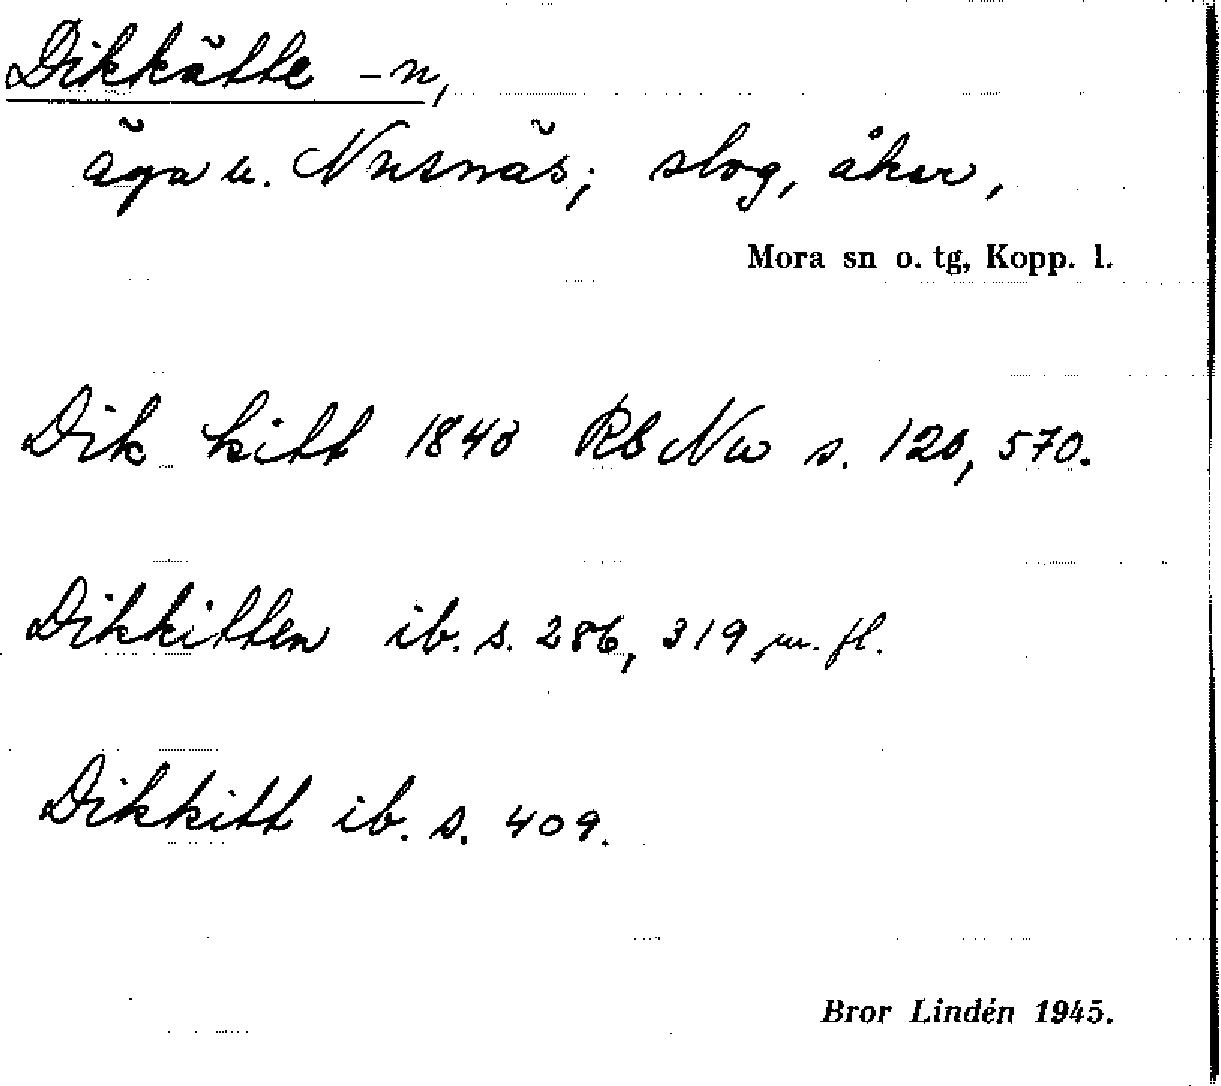 Dikkätte -n,
äga u. Nusnäs; slog, åker,
Mora sn o. tg, Kopp. l.
Dik kitt 1843 RS Nw s. 120, 570.
Dikkitten ib. s. 286, 319 m. fl.
Dikkitt ib. s. 409.
Bror Lindén 1945.